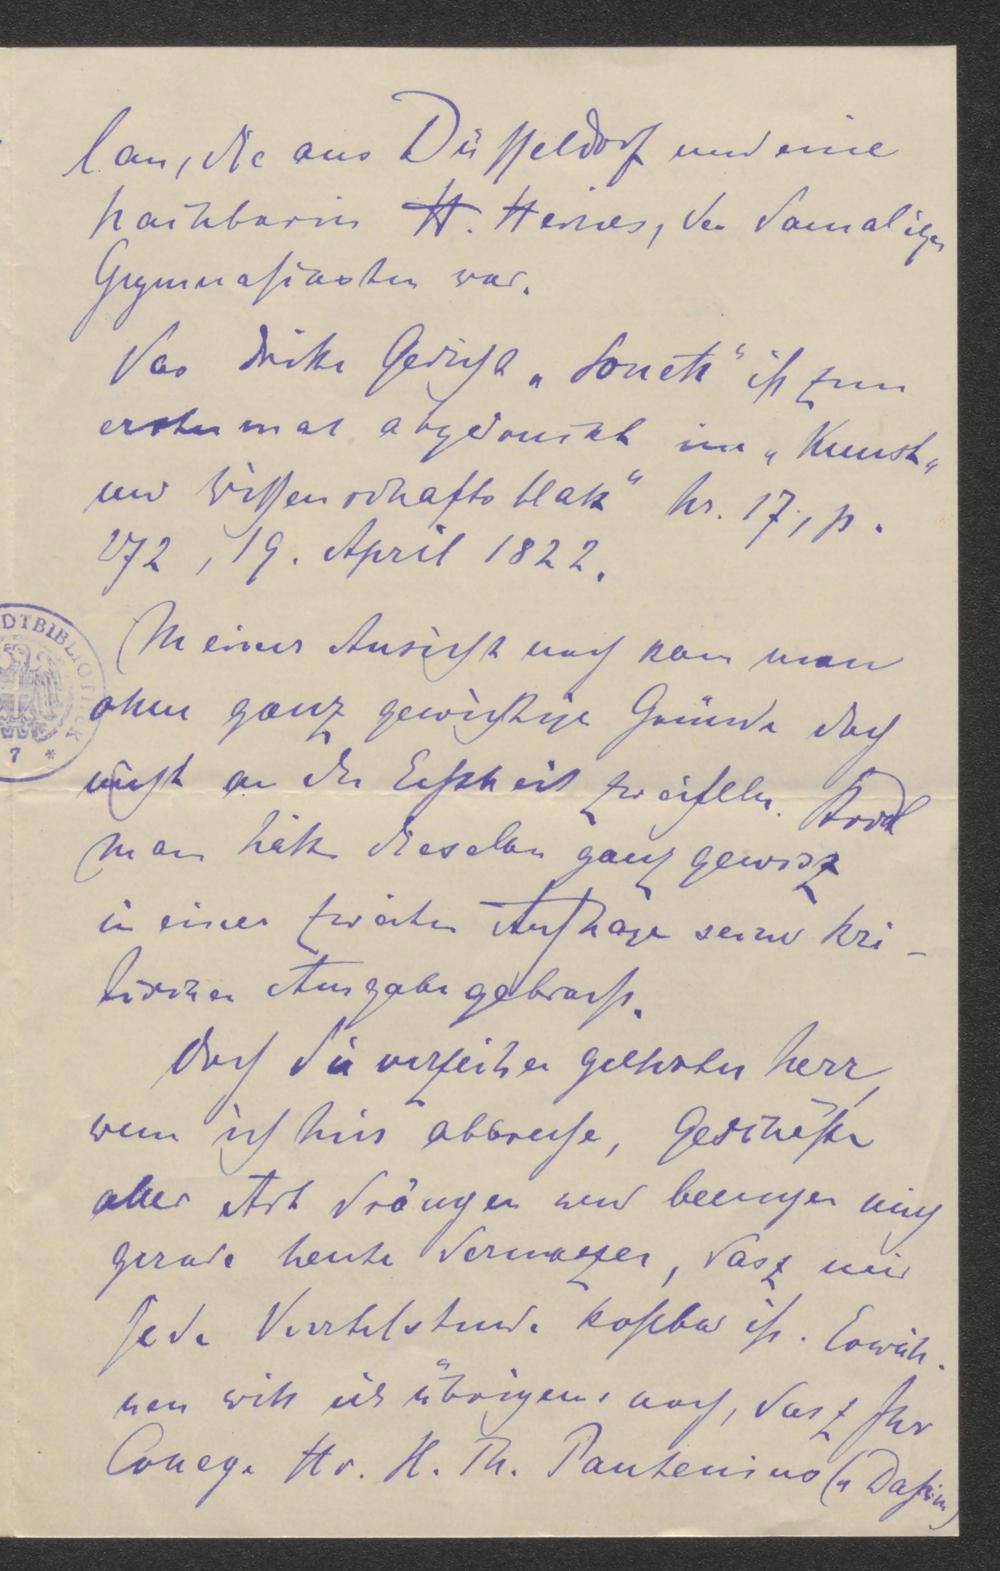 lan, die aus Düsseldorf und eine
Nachbarin H. Heines, des damaligen
Gymnasiasten war.
Das dritte Gedicht „Sonett" ist zum
erstenmal abgedruckt im „Kunst„
und Wissenschaftsblatt" Nr. 17, p.
272, 19. April 1822.
Meiner Ansicht nach kann man
ohne ganz gewichtige Gründe doch
nicht an der Echtheit zweifeln. Strodt
man hätte dieselben ganz gewisz
in einer zweiten Auflage seiner kri-
tischen Ausgabe gebracht.
Doch Sie verzeihen geehrter Herr,
wenn ich hier abbreche, Geschäfte
aller Art drängen und beengen mich
gerade heute dermaszen, dasz mir
jede Viertelstunde kostbar ist. Erwäh-
nen will ich übrigens noch, dasz Ihr
College Hr. H. Th. Pantenius („Daheim")
DTBIBLIOTHEK
7 *